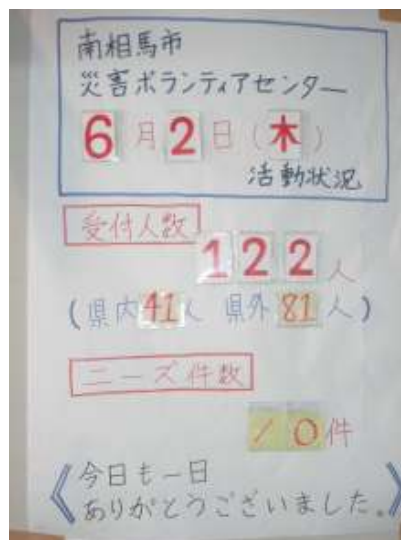 南相馬市
災害ボランティアセンター
6月2日(木)
活動状況
受付人数
122人
(県内41人 県外81人)
ニーズ件数
10件
《今日も一日
ありがとうございました。》